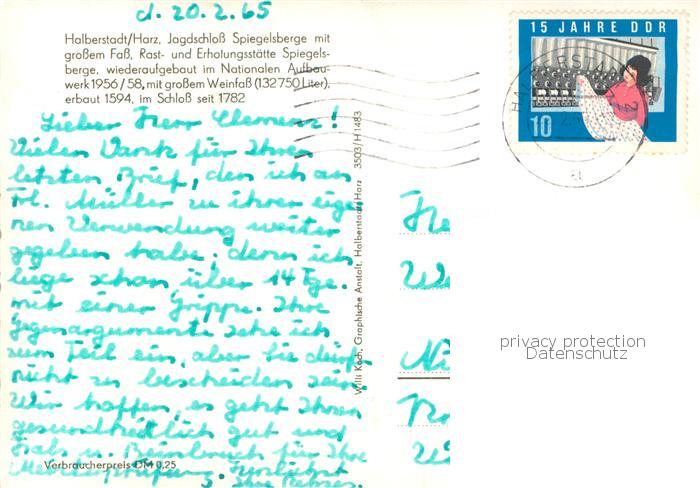 d. 20.2.65
Halberstadt/Harz, Jagdschloß Spiegelsberge mit
großem Faß, Rast- und Erholungsstätte Spiegels-
berge, wiederaufgebaut im Nationalen Aufbau-
werk 1956/58, mit großem Weinfaß (132750 Liter),
erbaut 1594, im Schloß seit 1782
Lieber Herr Clemenz!
Vielen Dank für Ihren
letzten Brief, den ich an
Frl. Müller zu ihrer eige
nen Verwendung weiter
gegeben habe, denn ich
liege schon über 14 Tge.
mit einer Grippe. Ihre
Gegenargumente sehe ich
zum Teil ein, aber Sie dürfen
nicht zu bescheiden sein.
Wir hoffen, es geht Ihnen
gesundheitlich gut und
Hals u. Beinbruch für Ihre
Meisterprüfung
Verbraucherpreis DM 0,25
Willi Koch, Graphische Anstalt, Halberstadt/Harz 3503/H 1483
15 JAHRE DDR
10
HALBERSTADT
privacy protection
Datenschutz